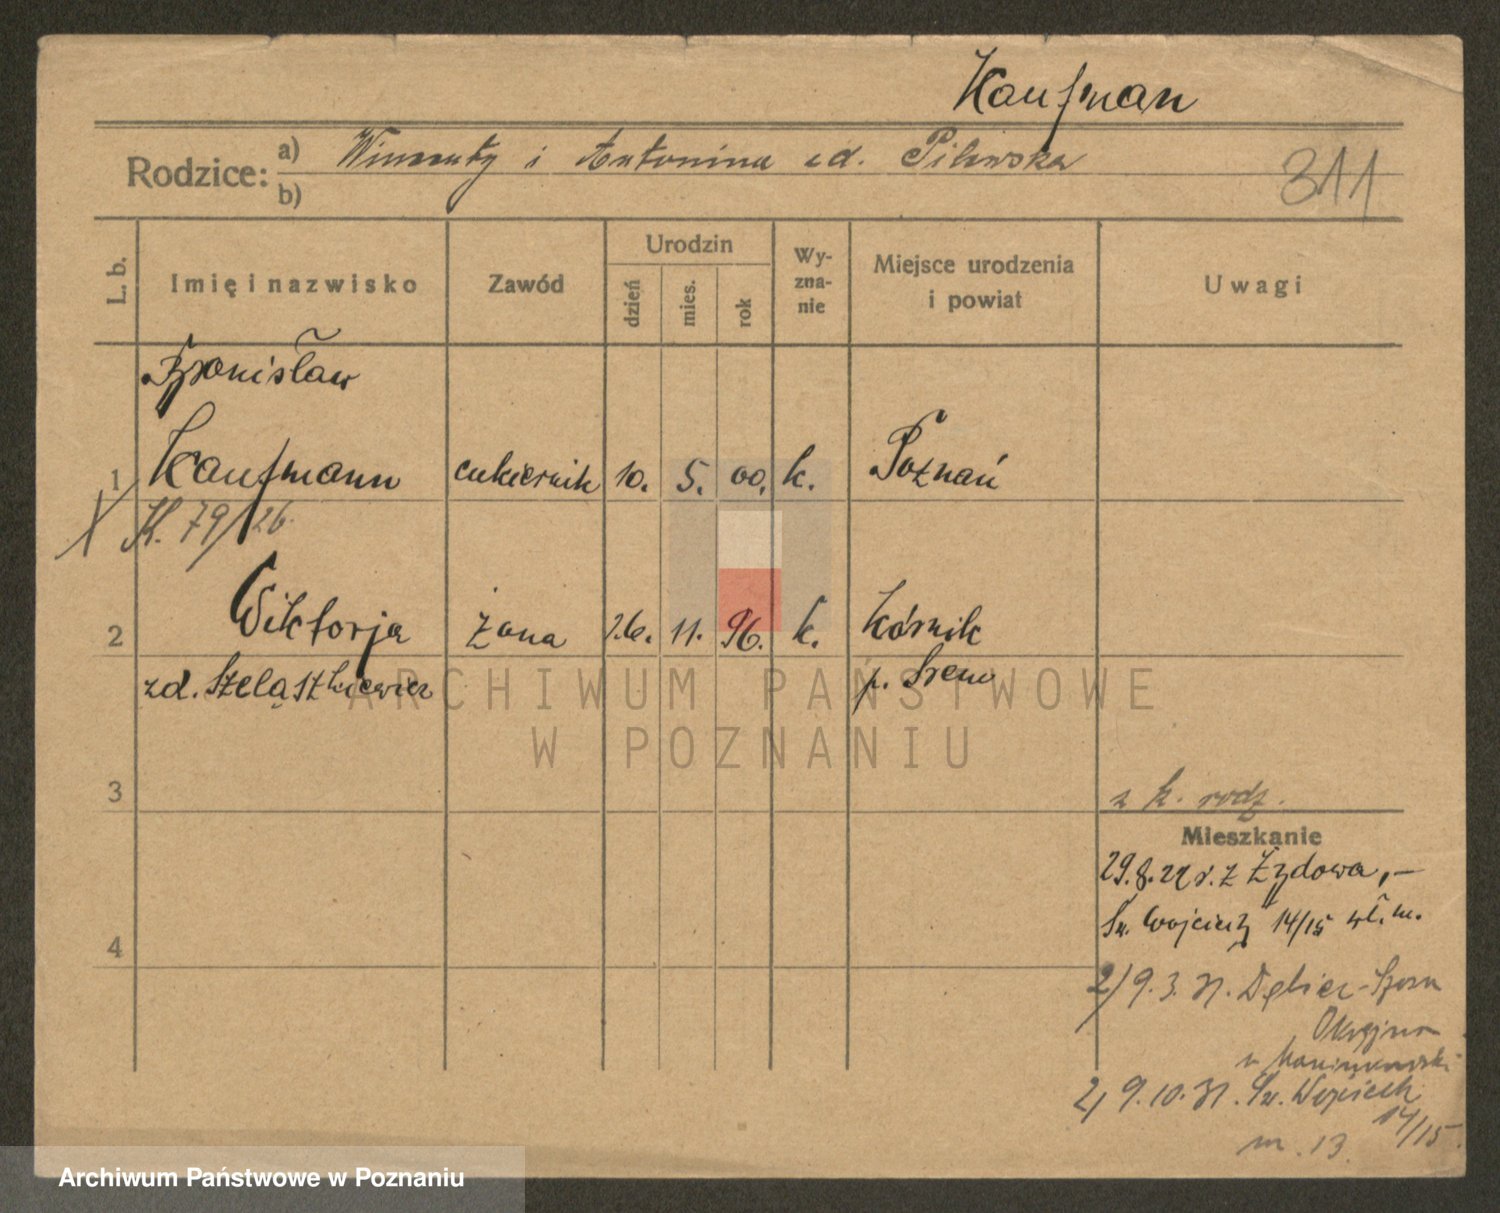 Kaufman
Rodzice: a) Wincenty i Antonina zd. Pilewska
b)
311
L. b. Imię i nazwisko Zawód Urodzin dzień mies. rok Wy-zna-nie Miejsce urodzenia i powiat Uwagi
Bronisław
1 Kaufmann cukiernik 10. 5. 00. k. Poznań
K. 79/26.
2 Wiktorja żona 26. 11. 96. k. Kórnik
zd. Szelążkiewicz p. Śrem
ARCHIWUM PAŃSTWOWE
W POZNANIU
3
z k. rodz.
Mieszkanie
29.8.22 r. z Żydowa,-
Św. Wojciech 14/15 wł. m.
4
2) 9.3.31. Dębiec-Szosa
Okrężna
u
2) 9.10.31. Św. Wojciech
14/15.
m. 13.
Archiwum Państwowe w Poznaniu